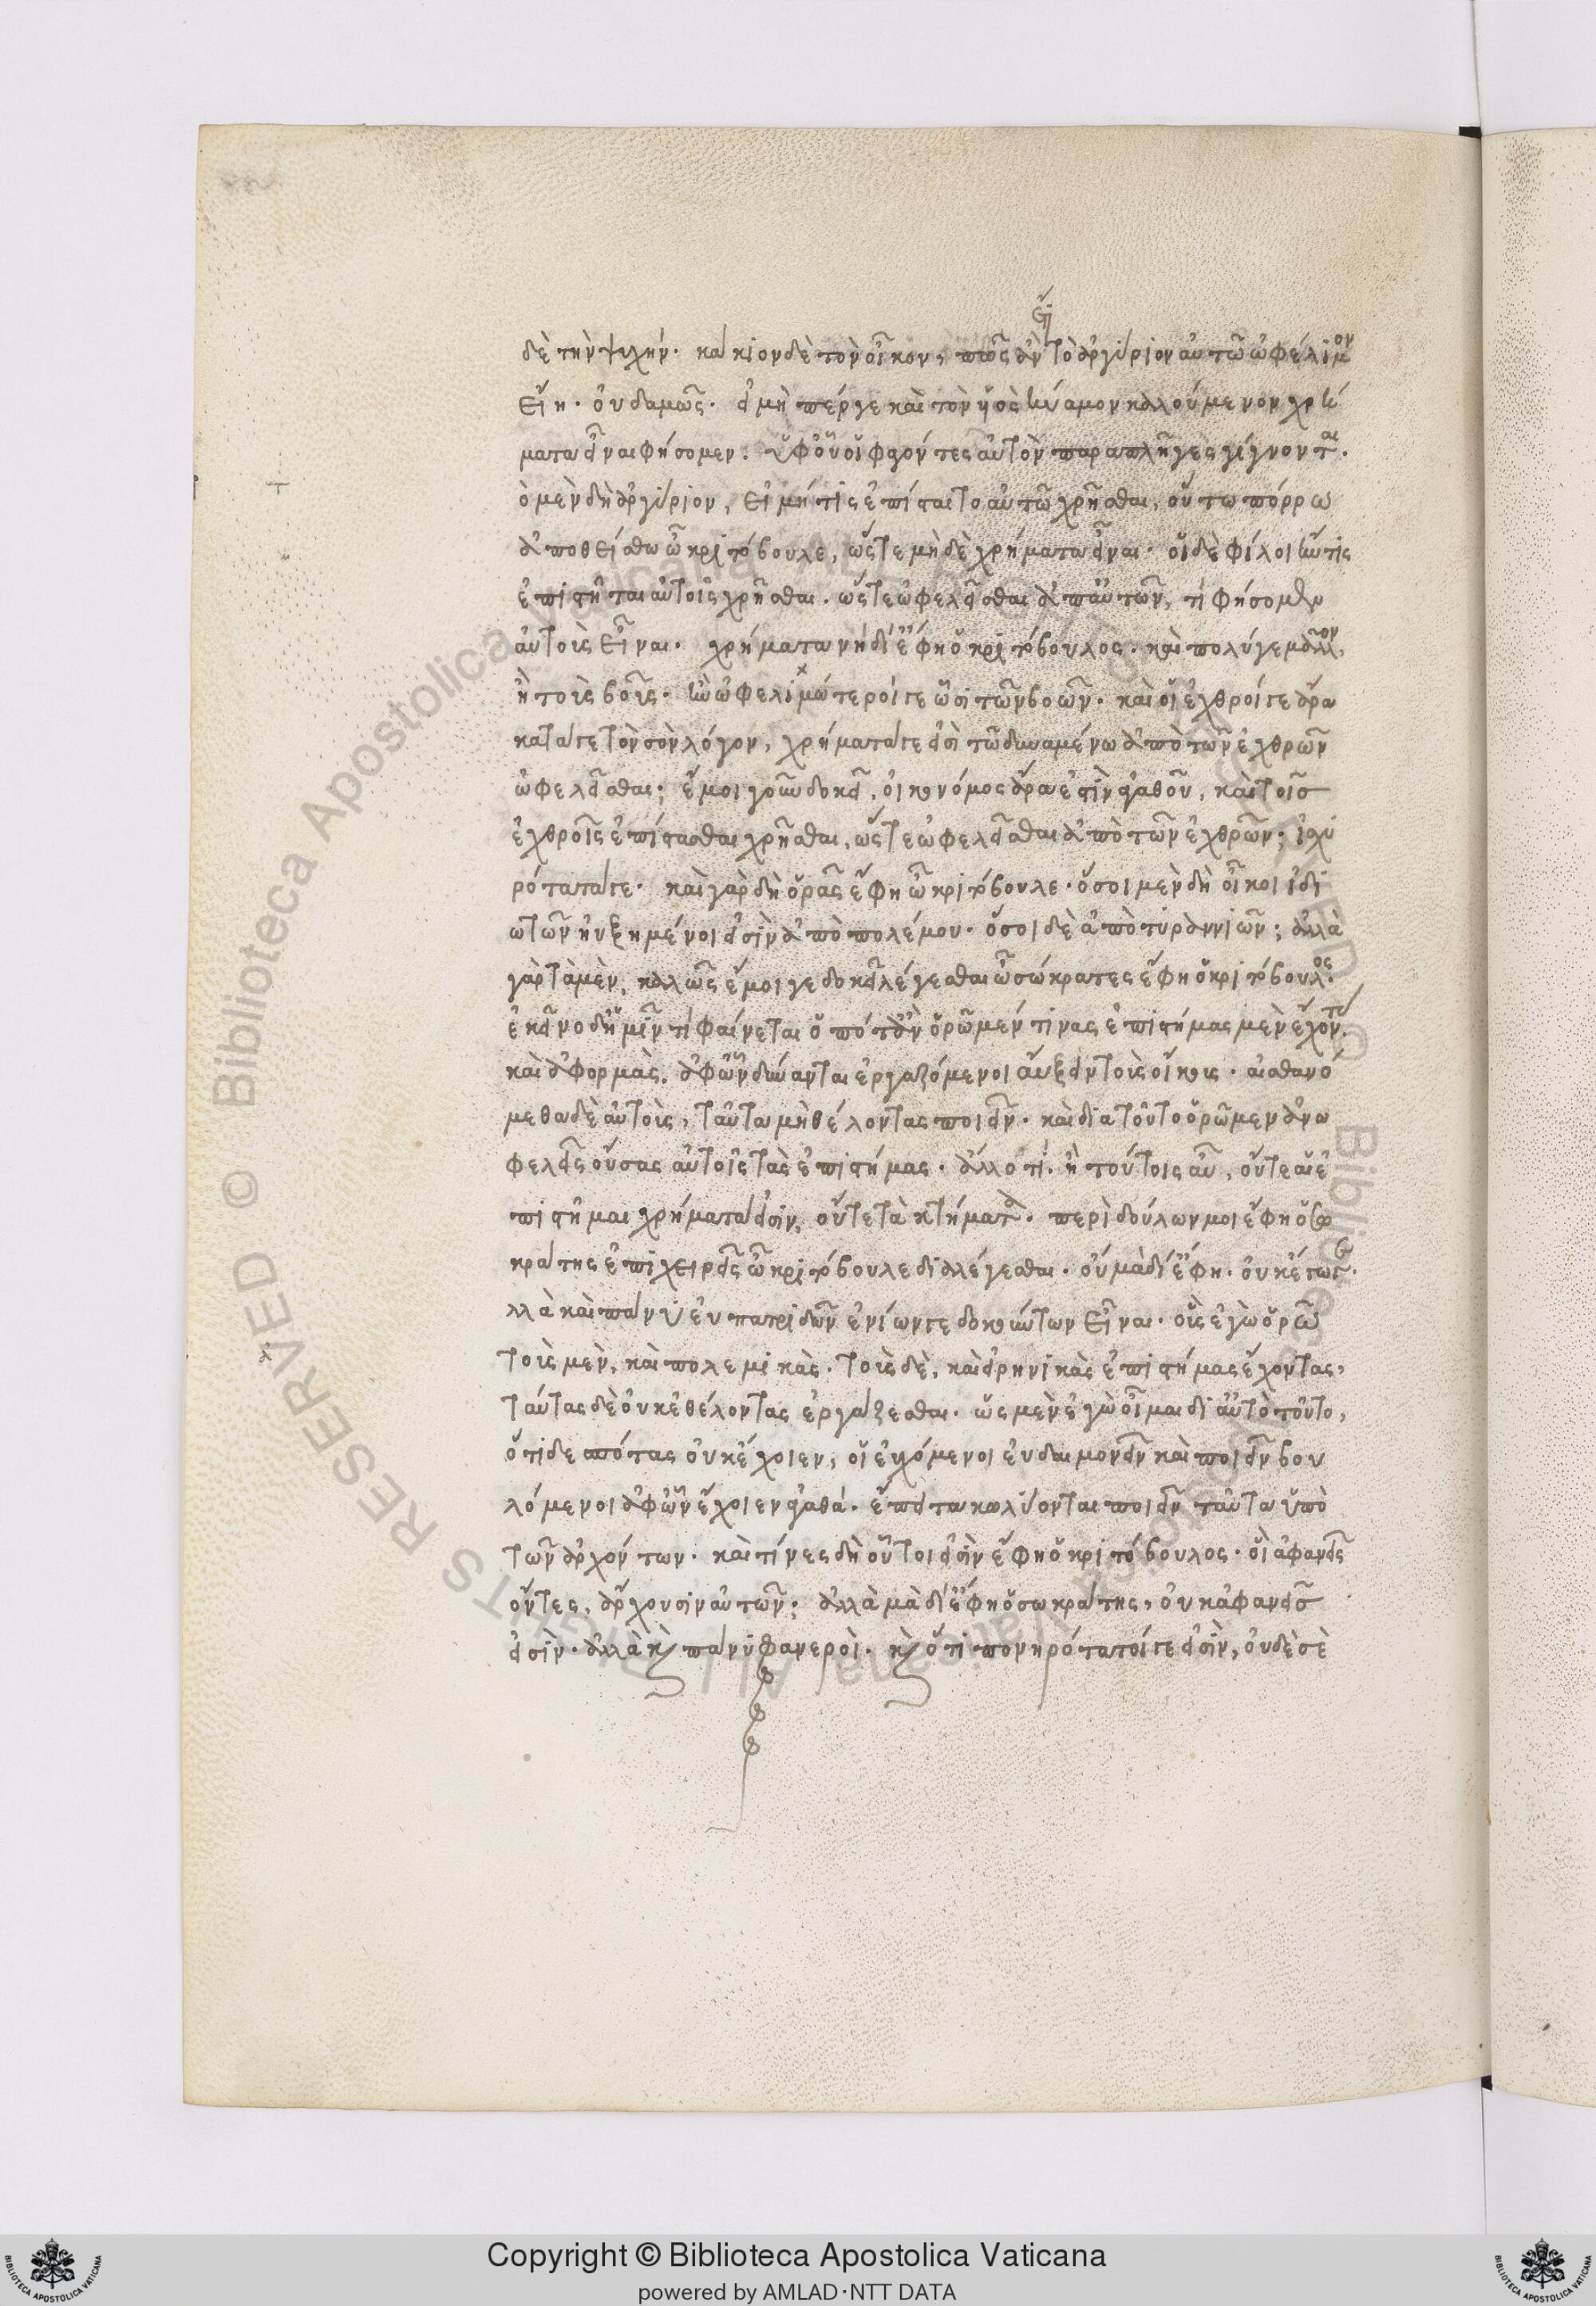 δὲ τὴν ψυχήν· κάκιον δὲ τὸν οἶκον, πῶς ἂν ἔτι τὸ ἀργύριον αὐτῶ ὠφέλιμον
εἴη· οὐδαμῶς· εἰ μὴ πέργε καὶ τὸν ὑὸς κύαμον καλούμενον χρή
ματα εἶναι φήσομεν· ὑφ' οὗ οἱ φαγόντες αὐτὸν παραπλῆγες γίγνονται·
ὁ μὲν δὴ ἀργύριον, εἰ μή τις ἐπίσταιτο αὐτῶ χρῆσθαι, οὕτω πόρρω
ἀποθείσθω ὦ κριτόβουλε, ὥστε μὴ δὲ χρήματα εἶναι· οἱ δὲ φίλοι ἤν τις
ἐπίστηται αὐτοῖς χρῆσθαι. ὥστε ὠφελεῖσθαι ἀπ' αὐτῶν, τί φήσομεν
αὐτοὺς εἶναι· χρήματα νὴ δί' ἔφη ὁ κριτόβουλος· καὶ πολύ γε μᾶλλον,
ἢ τοὺς βοῦς· ἢν ὠφελιμώτεροί γε ὦσι τῶν βοῶν· καὶ οἱ ἐχθροί γε ἄρα
κατά γε τὸν σὸν λόγον, χρήματά γε εἰσὶ τῶ δυναμένω ἀπὸ τῶν ἐχθρῶν
ὠφελεῖσθαι; ἔμοι γοῦν δοκεῖ, οἰκονόμος ἄρα ἐστὶν ἀγαθοῦ, καὶ τοῖς
ἐχθροῖς ἐπίστασθαι χρῆσθαι, ὥστε ὠφελεῖσθαι ἀπὸ τῶν ἐχθρῶν; ἰσχυ
ρότατά γε· καὶ γὰρ δὴ ὁρᾶς ἔφη ὦ κριτόβουλε· ὅσοι μὲν δὴ οἶκοι ἰδι
ωτῶν ηὐξημένοι εἰσὶν ἀπὸ πολέμου· ὅσοι δὲ ἀπὸ τυραννιῶν; ἀλλὰ
γὰρ τὰ μὲν, καλῶς ἔμοιγε δοκεῖ λέγεσθαι ὦ σώκρατες ἔφη ὁ κριτόβουλος·
ἐκεῖνο δ' ἡμῖν τί φαίνεται ὁπόταν ὁρῶμέν τινας ἐπιστήμας μὲν ἔχοντας,
καὶ ἀφορμὰς, ἀφ' ὧν δύνανται ἐργαζόμενοι αὔξειν τοὺς οἴκους· αἰσθανό
μεθα δὲ αὐτοὺς, ταῦτα μὴ θέλοντας ποιεῖν· καὶ διὰ τοῦτο ὁρῶμεν ἀνω
φελεῖς οὔσας αὐτοῖς τὰς ἐπιστήμας· ἄλλο τί· ἢ τούτοις αὖ, οὔτε αἱ ἐ
πιστῆμαι χρήματά εἰσιν, οὔτε τὰ κτήματα· περὶ δούλων μοι ἔφη ὁ σω
κράτης ἐπιχειρεῖς ὦ κριτόβουλε διαλέγεσθαι· οὐ μὰ δί' ἔφη· οὐκ ἔγωγε·
λλὰ καὶ πάνυ εὐπατριδῶν ἐνίων γε δοκούντων εἶναι· οὓς ἐγὼ ὁρῶ
τοὺς μὲν, καὶ πολεμικὰς· τοὺς δὲ, καὶ εἰρηνικὰς ἐπιστήμας ἔχοντας,
ταύτας δὲ οὐκ ἐθέλοντας ἐργάζεσθαι· ὡς μὲν ἐγὼ οἶμαι δι' αὐτὸ τοῦτο,
ὅτι δεσπότας οὐκ ἔχοιεν, οἱ εὐχόμενοι εὐδαιμονεῖν καὶ ποιεῖν βου
λόμενοι ἀφ' ὧν ἔχοιεν ἀγαθά· ἔπειτα κωλύονται ποιεῖν ταῦτα ὑπὸ
τῶν ἀρχόντων· καὶ τίνες δὴ οὗτοι εἰσὶν ἔφη ὁ κριτόβουλος· οἳ ἀφανεῖς
ὄντες, ἄρχουσιν αὐτῶν; ἀλλὰ μὰ δί' ἔφη ὁ σωκράτης, οὐκ ἀφανεῖς
εἰσίν· ἀλλὰ καὶ πάνυ φανεροὶ· καὶ ὅτι πονηρότατοί γε εἰσὶν, οὐδὲ σὲ
Copyright © Biblioteca Apostolica Vaticana
powered by AMLAD·NTT DATA